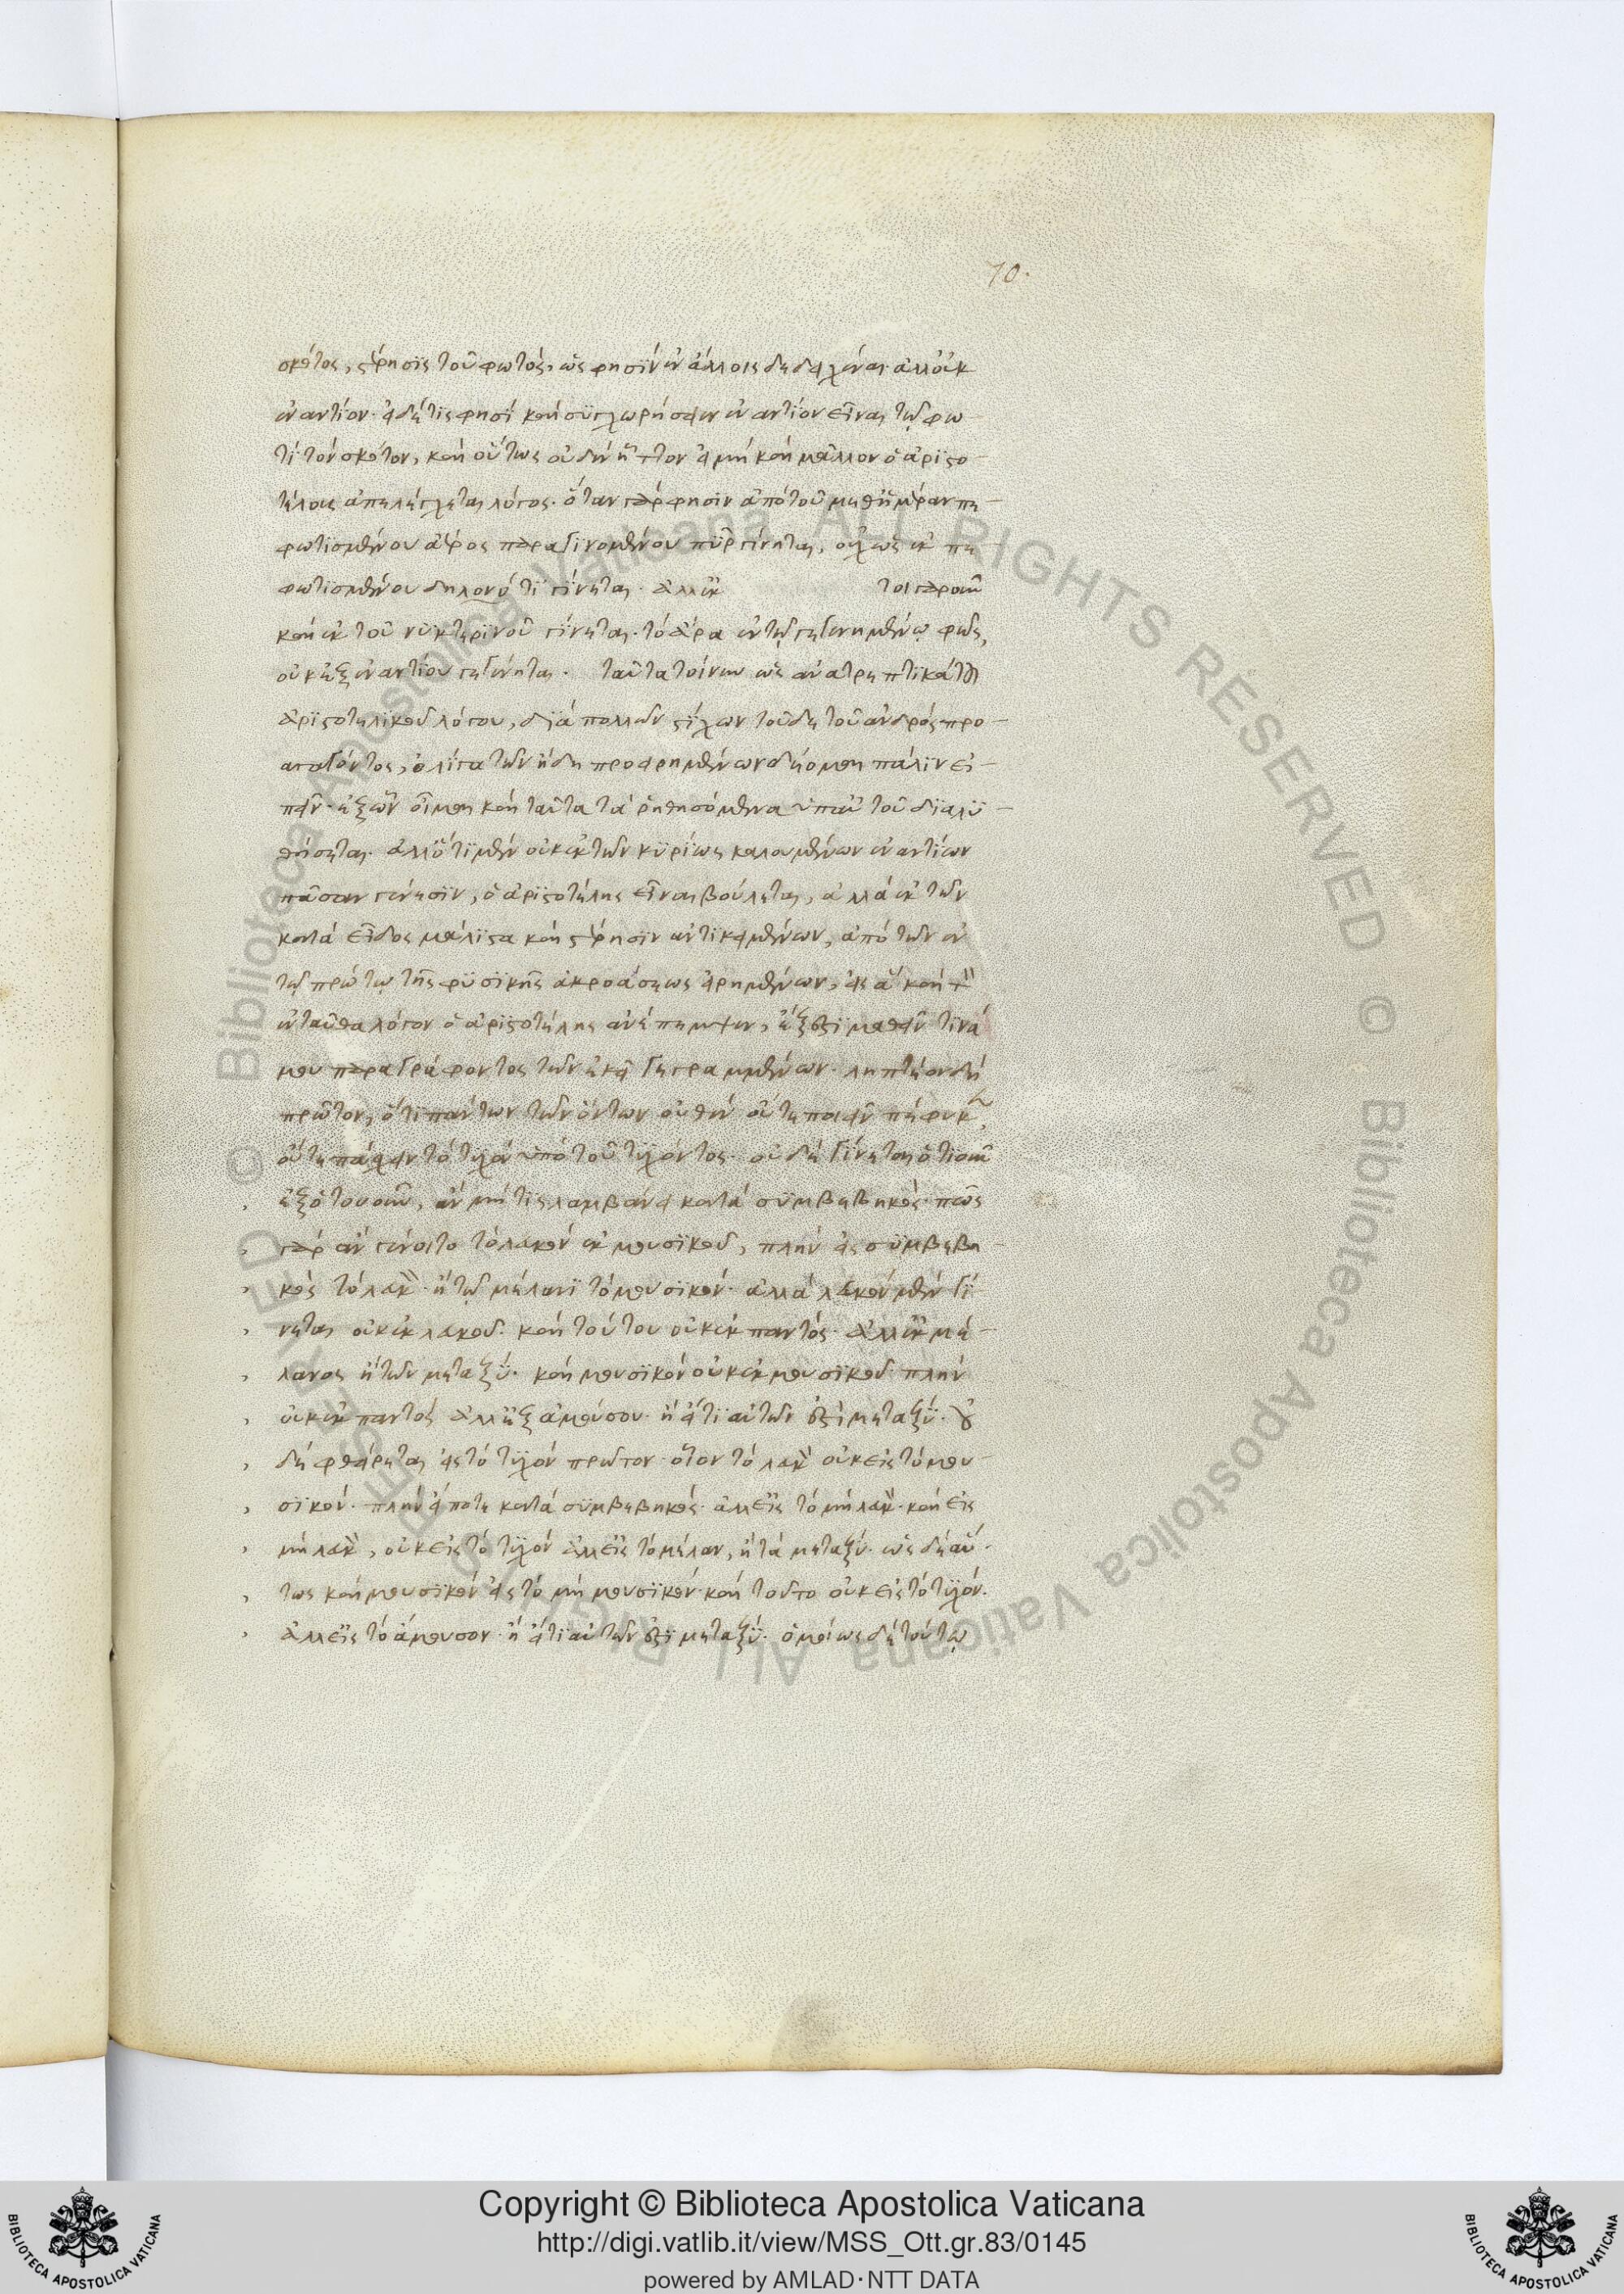 70.
σκότος, στέρησις τοῦ φωτός, ὥς φησιν ἐν ἄλλοις δέδειχέναι ἀλλ' οὐκ
ἐναντίον. εἰ δέ τις φησὶ καὶ συγχωρήσειεν ἐναντίον εἶναι τῷ φω-
τὶ τὸν σκότον, καὶ οὕτως οὐδὲν ἧττον εἰ μὴ καὶ μᾶλλον ὁ ἀριστο-
τέλους ἀπελέγχεται λόγος. ὅταν γάρ φησιν ἀπὸ τοῦ μεθημέραν πε-
φωτισμένου ἀέρος παραγινομένου πῦρ γίνηται, οὐχ ὡς ἐκ πε
φωτισμένου δηλονότι γίνεται. ἀλλ' ἐκ τοιγαροῦν
καὶ ἐκ τοῦ νυκτερινοῦ γίνεται. τὸ ἄρα ἐν τῷ γεγενημένῳ φῶς,
οὐκ ἐξ ἐναντίου γεγένηται. ταῦτα τοίνυν ὡς ἀνατρεπτικὰ τοῦ
ἀριστοτελικοῦ λόγου, διὰ πολλῶν στίχων τοῦδε τοῦ ἀνδρὸς προ-
αγαγόντος, ὀλίγα τῶν ἤδη προειρημένων δέομαι πάλιν εἰ-
πεῖν. ἐξ ὧν οἶμαι καὶ ταῦτα τὰ ῥηθησόμενα ὑπ' αὐτοῦ διαλυ
θήσεται. ἀλλ' ὅτι μὲν οὐκ ἐκ τῶν κυρίως καλουμένων ἐναντίων
πᾶσαν γένεσιν, ὁ ἀριστοτέλης εἶναι βούλεται, ἀλλὰ ἐκ τῶν
κατὰ εἶδος μάλιστα καὶ στέρησιν ἀντικειμένων, ἀπὸ τῶν ἐν
τῷ πρώτῳ τῆς φυσικῆς ἀκροάσεως εἰρημένων, εἰς ἃ καὶ τὸν
ἐνταῦθα λόγον ὁ ἀριστοτέλης ἀνέπεμψεν, ἔξεστι μαθεῖν τινά
μου παραγράφοντος τῶν ἐκεῖ γεγραμμένων. ληπτέον δὴ
πρῶτον, ὅτι πάντων τῶν ὄντων οὐθὲν οὔτε ποιεῖν πέφυκεν,
οὔτε πάσχειν τὸ τυχὸν ὑπὸ τοῦ τυχόντος. οὐδὲ γίνεται ὁτιοῦν
ἐξ ὁτουοῦν, ἂν μή τις λαμβάνει κατὰ συμβεβηκός· πῶς
γὰρ ἂν γένοιτο τὸ λευκὸν ἐκ μουσικοῦ, πλὴν εἰ συμβεβη
κὸς τὸ λευκὸν ἢ τῷ μέλανι τὸ μουσικόν. ἀλλὰ λευκὸν μὲν γί
νεται οὐκ ἐκ λευκοῦ. καὶ τούτου οὐκ ἐκ παντός. ἀλλ' ἐκ μέ-
λανος ἢ τῶν μεταξύ. καὶ μουσικὸν οὐκ ἐκ μουσικοῦ πλὴν
οὐκ ἐκ παντὸς ἀλλ' ἐξ ἀμούσου. ἢ εἴ τι αὐτῶν ἐστὶ μεταξύ. οὐ
δὲ φθείρεται εἰς τὸ τυχὸν πρῶτον. οἷον τὸ λευκὸν οὐκ εἰς τὸ μου-
σικόν. πλὴν εἴποτε κατὰ συμβεβηκός. ἀλλ' εἰς τὸ μὴ λευκὸν. καὶ εἰς
μὴ λευκὸν, οὐκ εἰς τὸ τυχὸν ἀλλ' εἰς τὸ μέλαν, ἢ τὰ μεταξύ. ὡς δ' αὔ-
τως καὶ μουσικὸν εἰς τὸ μὴ μουσικόν. καὶ τοῦτο οὐκ εἰς τὸ τυχόν.
ἀλλ' εἰς τὸ ἄμουσον. ἢ εἴ τι αὐτῶν ἐστὶ μεταξύ. ὁμοίως δὲ τούτῳ
Copyright © Biblioteca Apostolica Vaticana
http://digi.vatlib.it/view/MSS_Ott.gr.83/0145
powered by AMLAD·NTT DATA
BIBLIOTECA APOSTOLICA VATICANA
BIBLIOTECA APOSTOLICA VATICANA
© Biblioteca Apostolica Vaticana ALL RIGHTS RESERVED © Biblioteca Apostolica Vaticana ALL RIGHTS RESERVED